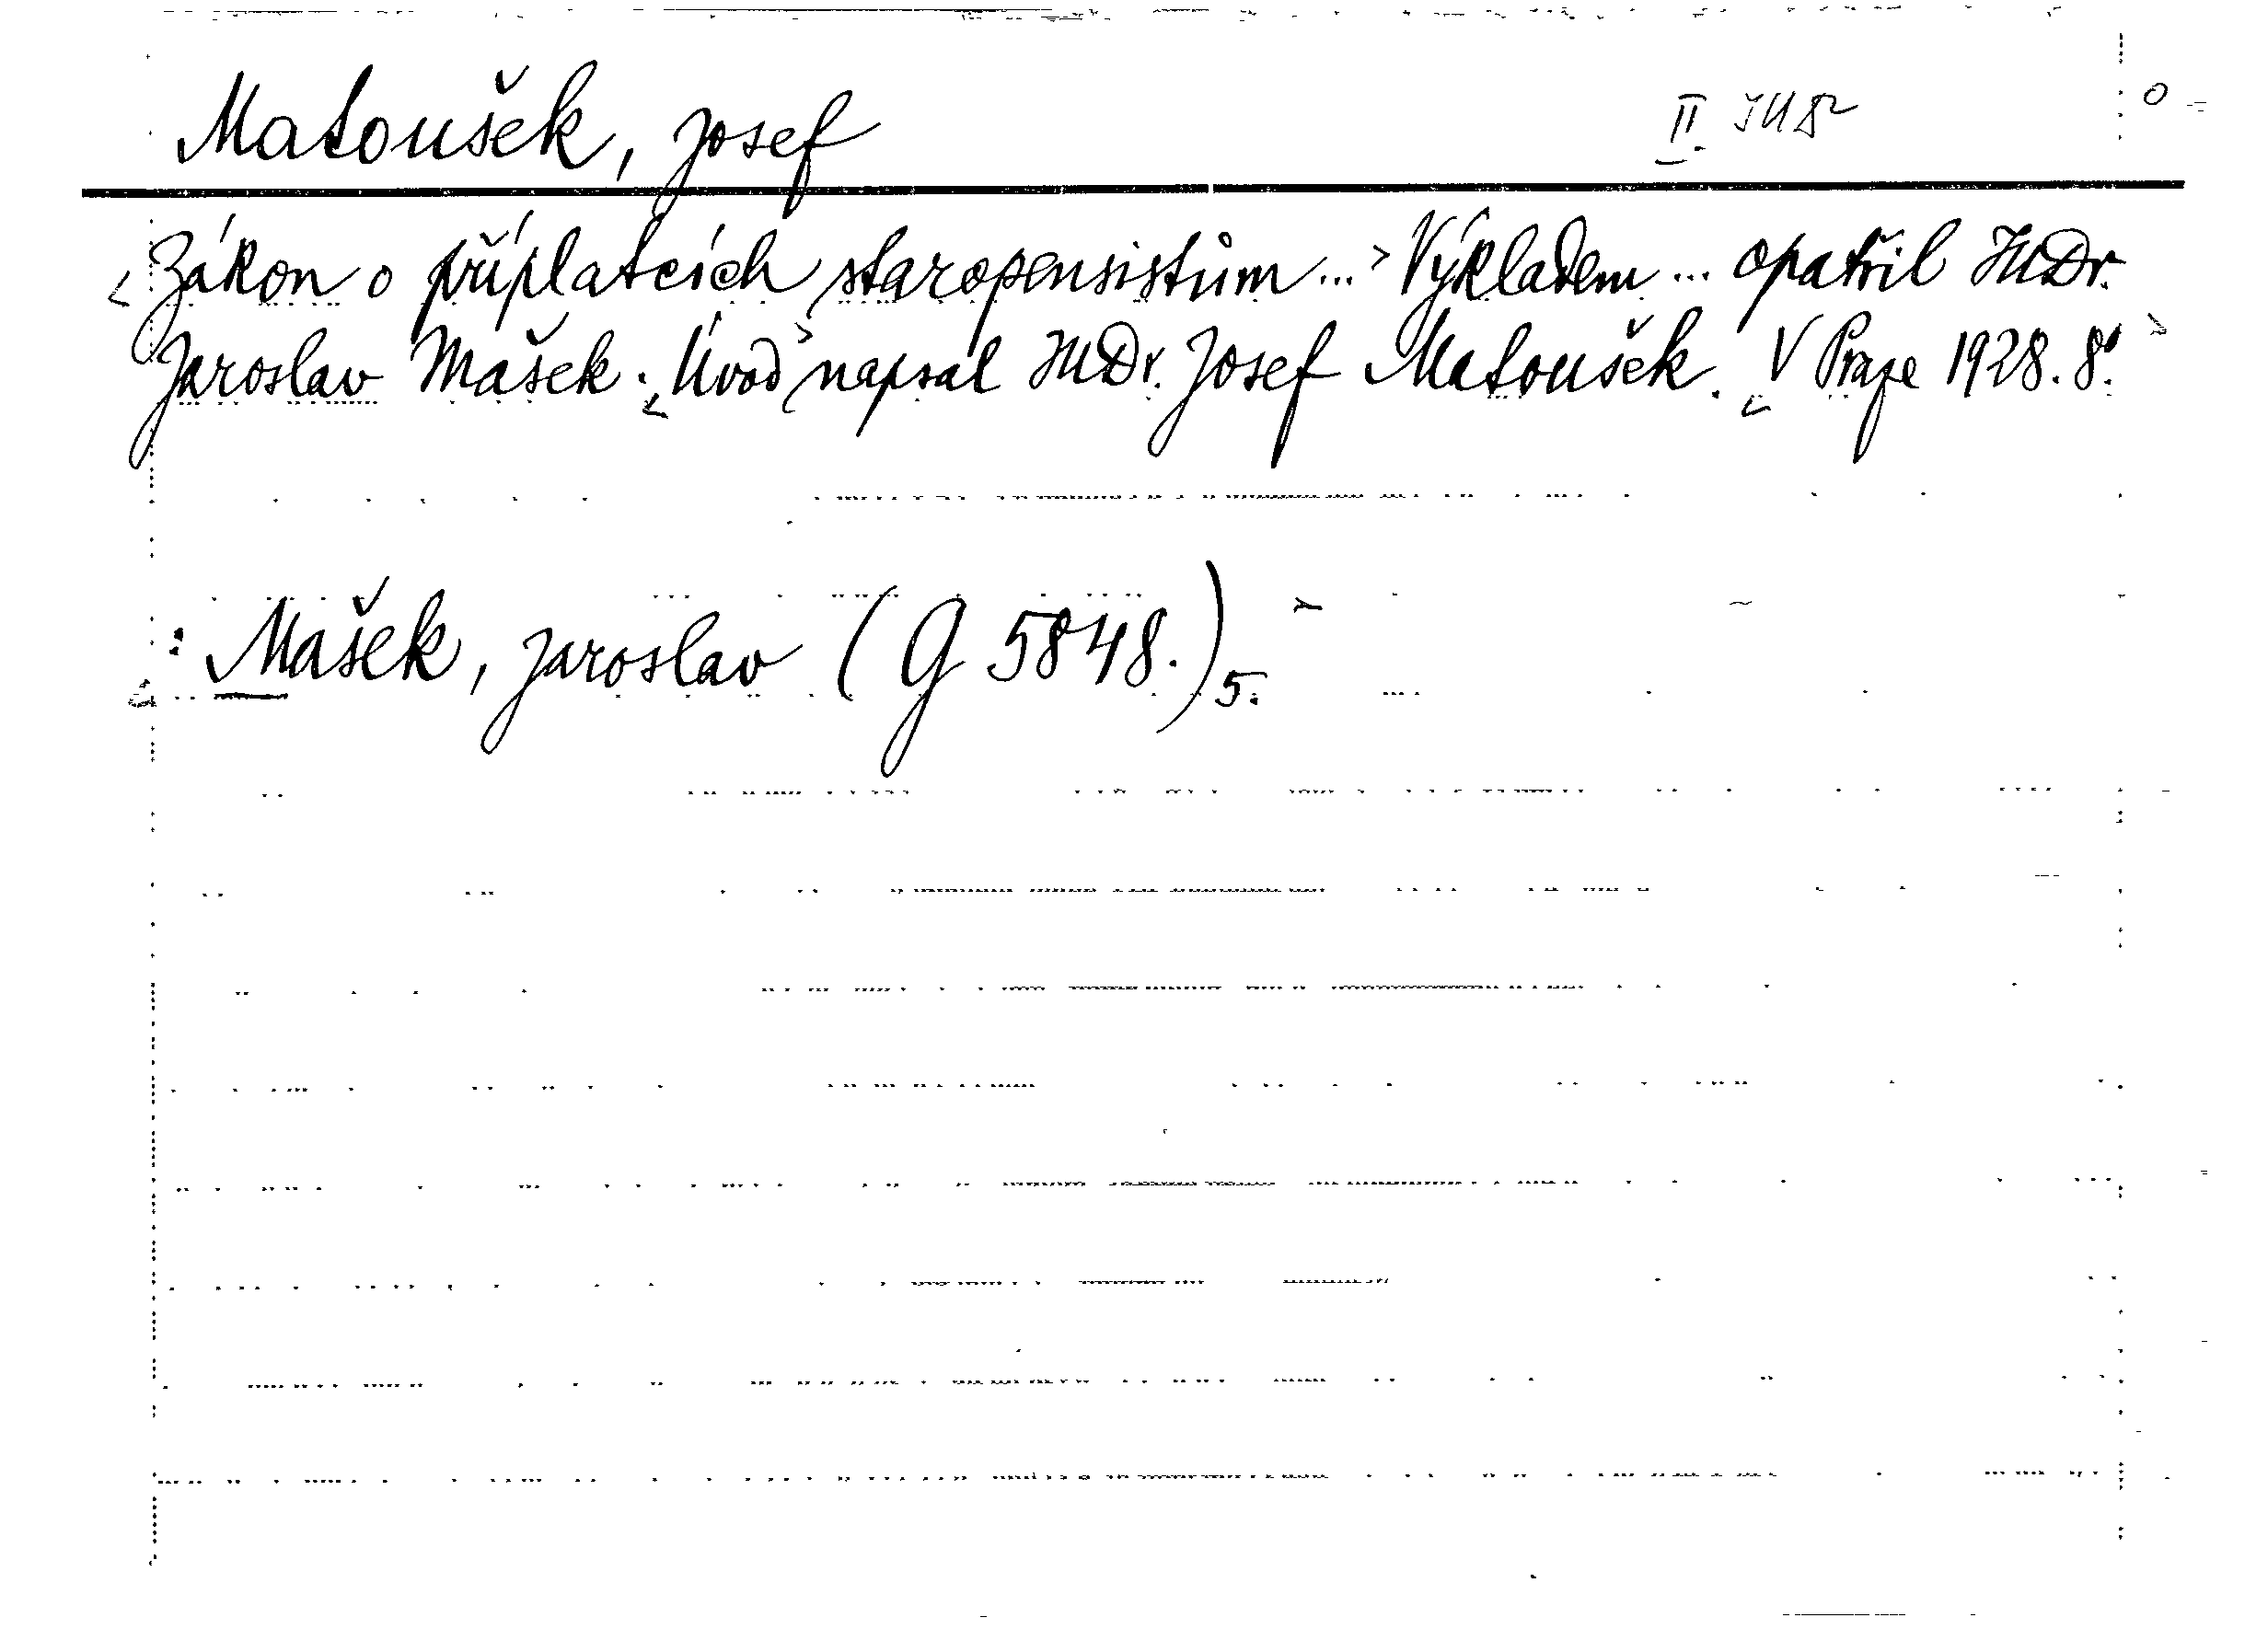 Matoušek, Josef
II.
<Zákon o příplatcích staropensistům...> Výkladem ... opatřil JUDr.
Jaroslav Mašek. <Úvod> napsal JUDr. Josef Matoušek. <V Praze 1928. 8°.>
: Mašek, Jaroslav (G 5848.) 5.